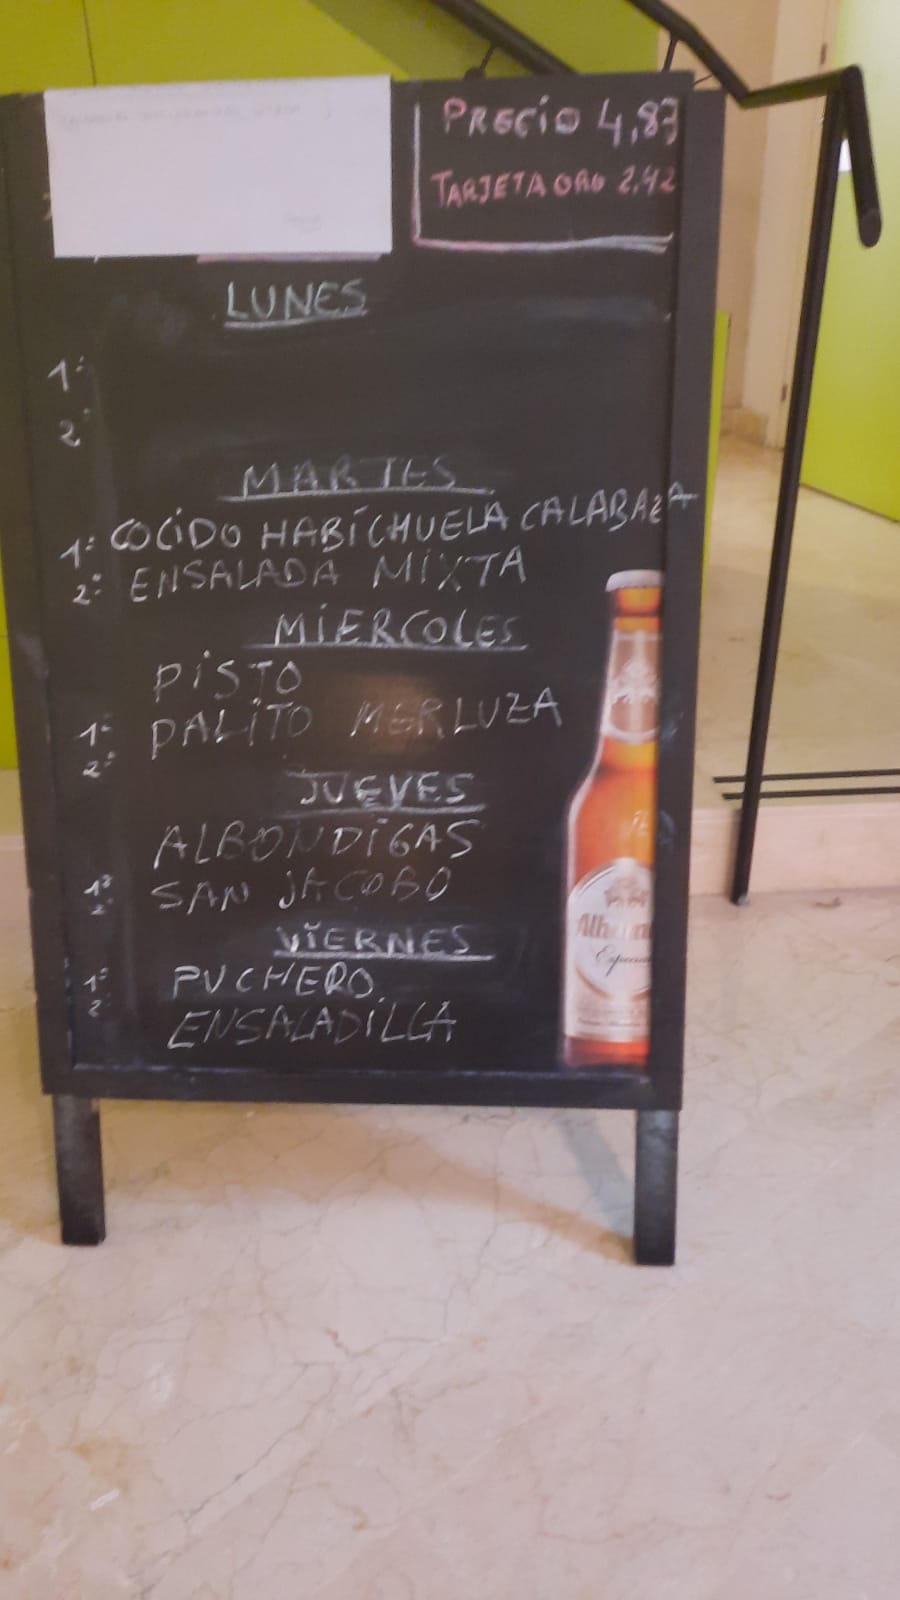 PRECIO 4,83
TARJETA ORO 2,42
LUNES
1º
2º
MARTES
1º COCIDO HABICHUELA CALABAZA
2º ENSALADA MIXTA
MIERCOLES
PISTO
1º PALITO MERLUZA
2º
JUEVES
ALBONDIGAS
1º SAN JACOBO
2º
VIERNES
1º PUCHERO
2º ENSALADILLA